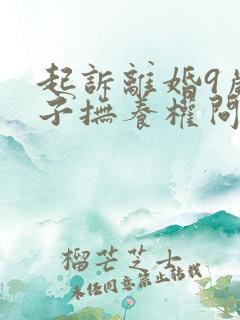 起訴離婚9歲
子撫養權問
榴芒芝士
未经同意禁止转载